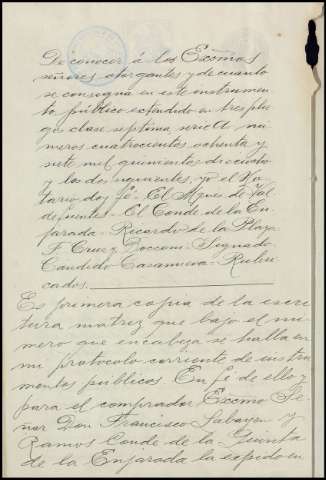 De conocer á los Excmos
señores otorgantes y de cuanto
se consigna en este instrumen
to público extendido en tres plie
gos clase septima serie A nú
meros cuatrocientos ochenta y
siete mil quinientos dieciocho
y los dos siguientes, yo el No
tario, doy fé - El Mqués de Val
defuentes - El Conde de la En
jarada - Ricardo de la Plaza
F. Cruz y Bocconi - Signado
Candido Casanueva - Rubri
cados.
Es primera copia de la escri
tura matriz que bajo el nú
mero que encabeza se halla en
mi protocolo corriente de instru
mentos públicos. En fé de ello y
para el comprador Excmo Se
ñor Don Francisco y
Ramos Conde de la Quinta
de la Enjarada la expido en